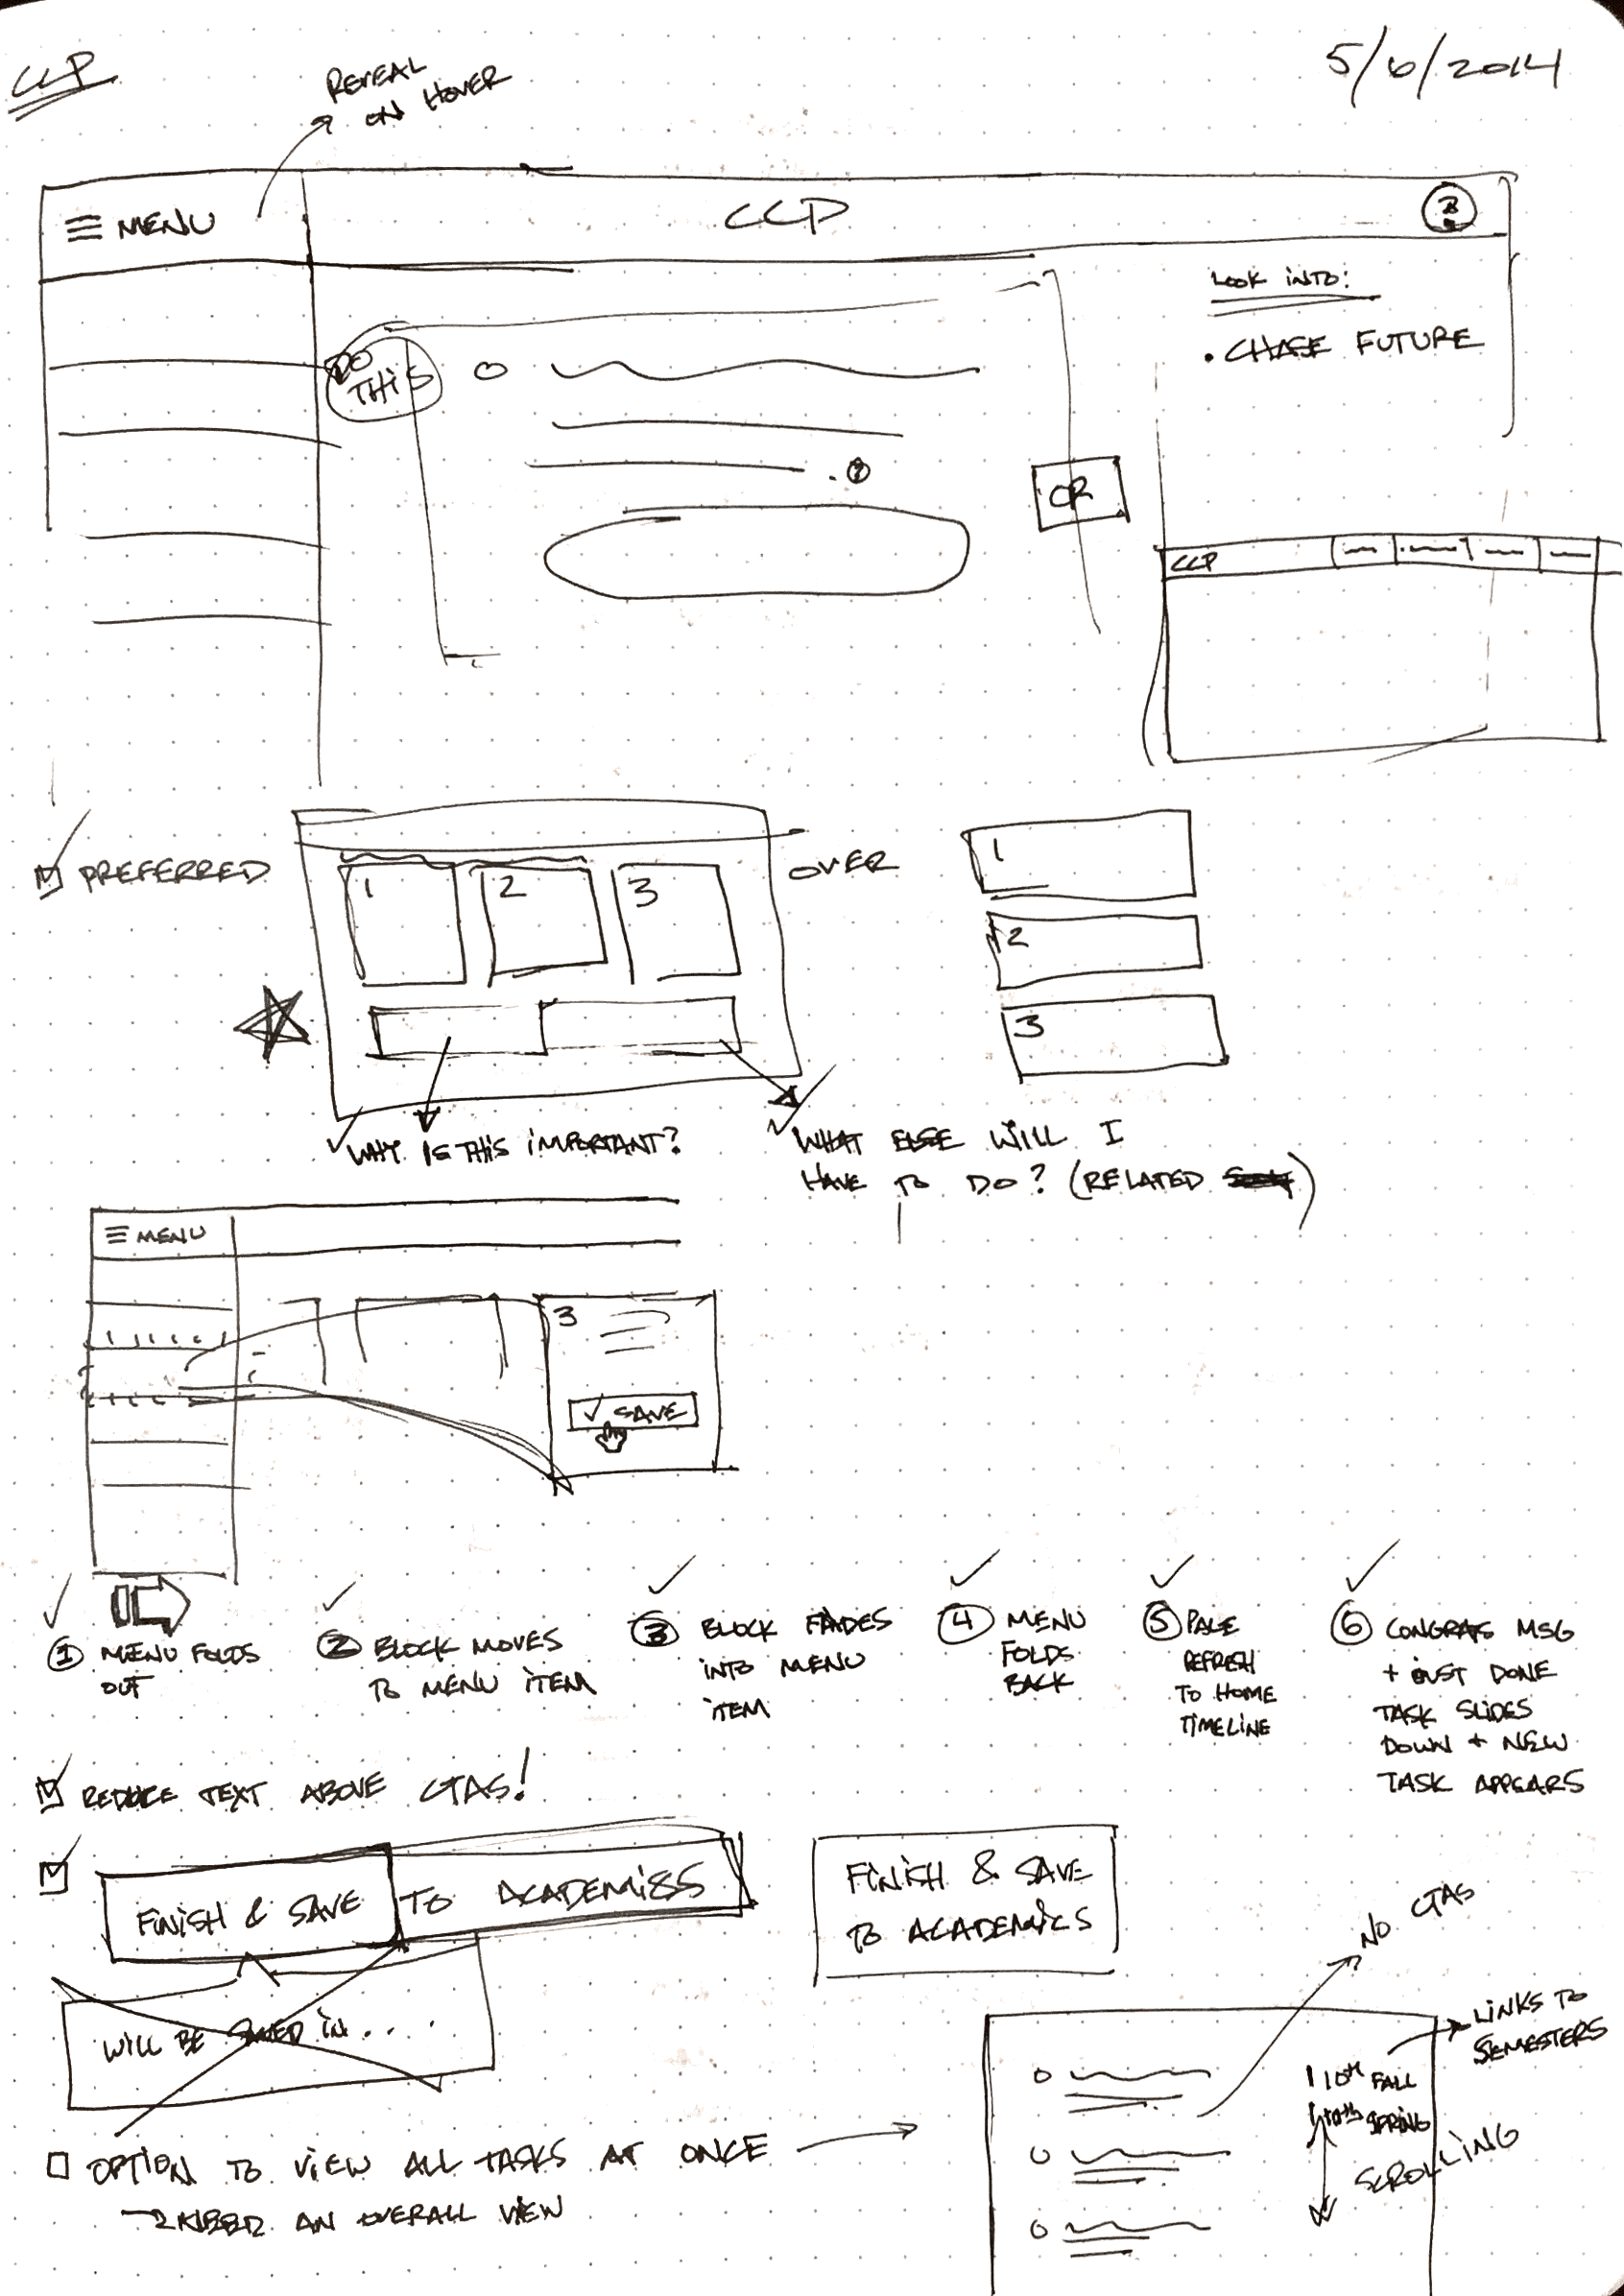 CCP
5/6/2014
REVEAL
ON HOVER
MENU
CCP
?
LOOK INTO:
• CHASE FUTURE
DO
THIS
. ?
OR
CCP
PREFERRED
1 2 3
OVER
1
2
3
WHY IS THIS IMPORTANT?
WHAT ELSE WILL I
HAVE TO DO? (RELATED )
MENU
3
SAVE
1 MENU FOLDS
OUT
2 BLOCK MOVES
TO MENU ITEM
3 BLOCK FADES
INTO MENU
ITEM
4 MENU
FOLDS
BACK
5 PAGE
REFRESH
TO HOME
TIMELINE
6 CONGRATS MSG
+ JUST DONE
TASK SLIDES
DOWN + NEW
TASK APPEARS
REDUCE TEXT ABOVE CTAS!
FINISH & SAVE TO ACADEMICS
FINISH & SAVE
TO ACADEMICS
WILL BE SAVED IN....
NO CTAS
LINKS TO
SEMESTERS
10TH FALL
10TH SPRING
SCROLLING
OPTION TO VIEW ALL TASKS AT ONCE
AN OVERALL VIEW